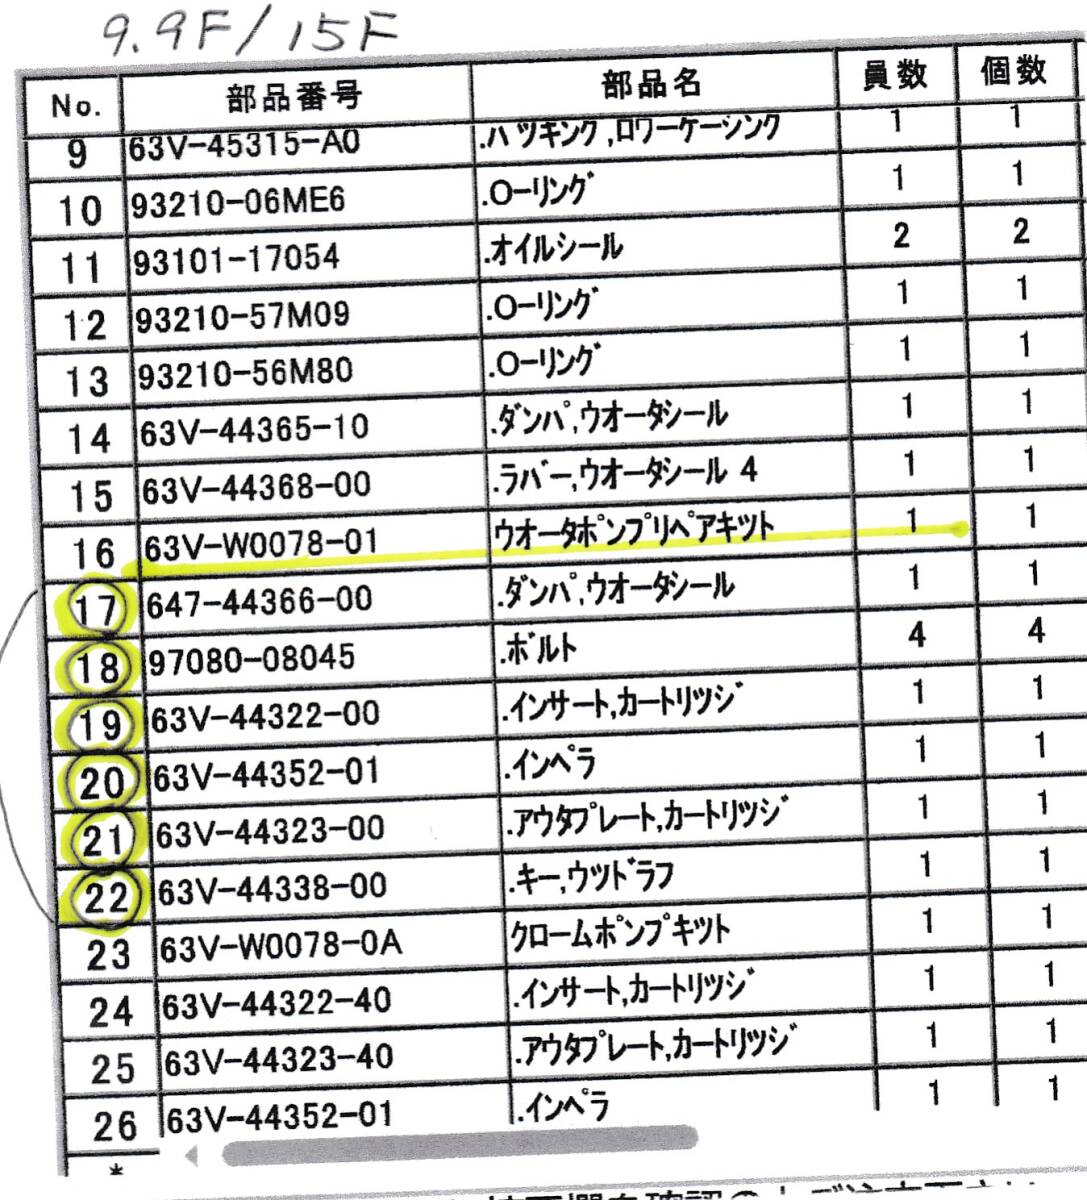 9.9F/15F
No. 部品番号 部品名 員数 個数
9 63V-45315-A0 .パツキング,ロワーケーシング 1 1
10 93210-06ME6 .Oーリング 1 1
11 93101-17054 .オイルシール 2 2
12 93210-57M09 .Oーリング 1 1
13 93210-56M80 .Oーリング 1 1
14 63V-44365-10 .ダンパ,ウオータシール 1 1
15 63V-44368-00 .ラバー,ウオータシール 4 1 1
16 63V-W0078-01 ウオータポンプリペアキツト 1 1
17 647-44366-00 .ダンパ,ウオータシール 1 1
18 97080-08045 .ボルト 4 4
19 63V-44322-00 .インサート,カートリツジ 1 1
20 63V-44352-01 .インペラ 1 1
21 63V-44323-00 .アウタプレート,カートリツジ 1 1
22 63V-44338-00 .キー,ウツドラフ 1 1
23 63V-W0078-0A クロームポンプキツト 1 1
24 63V-44322-40 .インサート,カートリツジ 1 1
25 63V-44323-40 .アウタプレート,カートリツジ 1 1
26 63V-44352-01 .インペラ 1 1
*